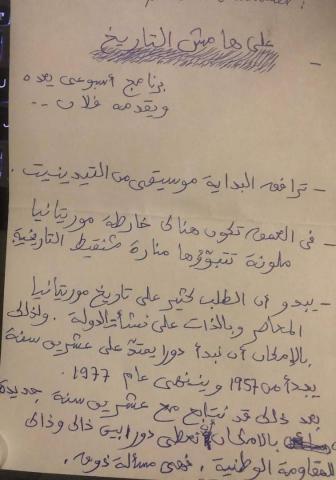 على هامش التاريخ
برنامج أسبوعي يعده
ويقدمه فلان ..
- ترافقه البداية موسيقى من التيدينيت .
- في العمق تكون هنالك خارطة موريتانيا
ملونة تتبوؤها منارة شنقيط التاريخية
- يبدو أن الطلب كثير على تاريخ موريتانيا
المعاصر وبالذات على نشأة الدولة . ولذلك
بالإمكان أن نبدأ دورا يمتد على عشرين سنة
يبدأ من 1957 وينتهي عام 1977.
بعد ذلك قد نحتاج مع عشرين سنة جديدة
بالإمكان أن نعطي دورا بين ذلك وذلك
للمقاومة الوطنية . فهي مسألة ذوق .